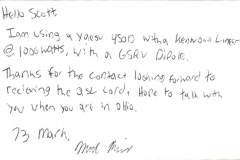 Hello Scott
I am using a Yaesu 450D with a Kenwood Linear
@ 1000 watts, with a G5RV Dipole.
Thanks for the contact looking forward to
recieving the QSL Card. Hope to talk with
you when you are in Ohio.
73 Mark,